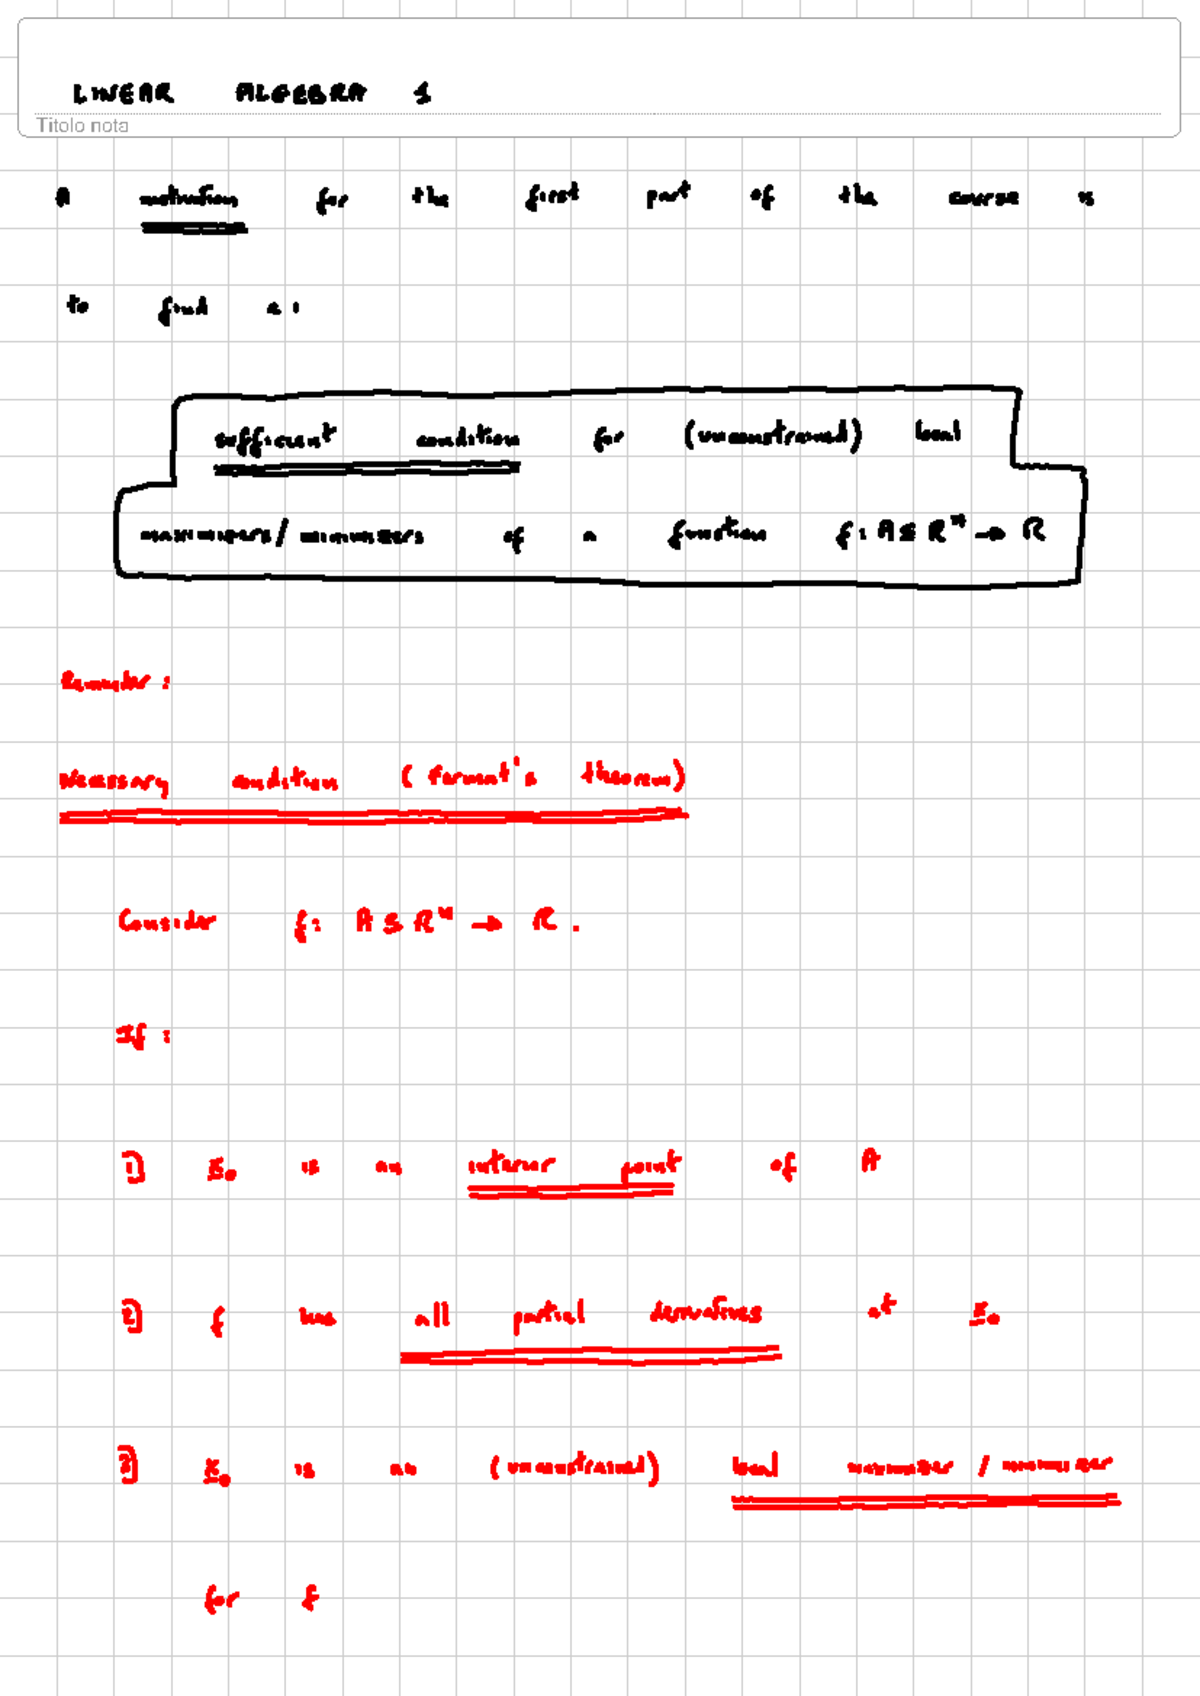 LINEAR ALGEBRA 1
Titolo nota
A motivation for the first part of the course is
to find a:
sufficient condition for (unconstrained) local
maximizers/ minimizers of a function f: A ⊆ R^n → R
Reminder:
Necessary condition (Fermat's theorem)
Consider f: A ⊆ R^n → R.
If:
1] x̲₀ is an interior point of A
2] f has all partial derivatives at x̲₀
3] x̲₀ is an (unconstrained) local maximizer / minimizer
for f